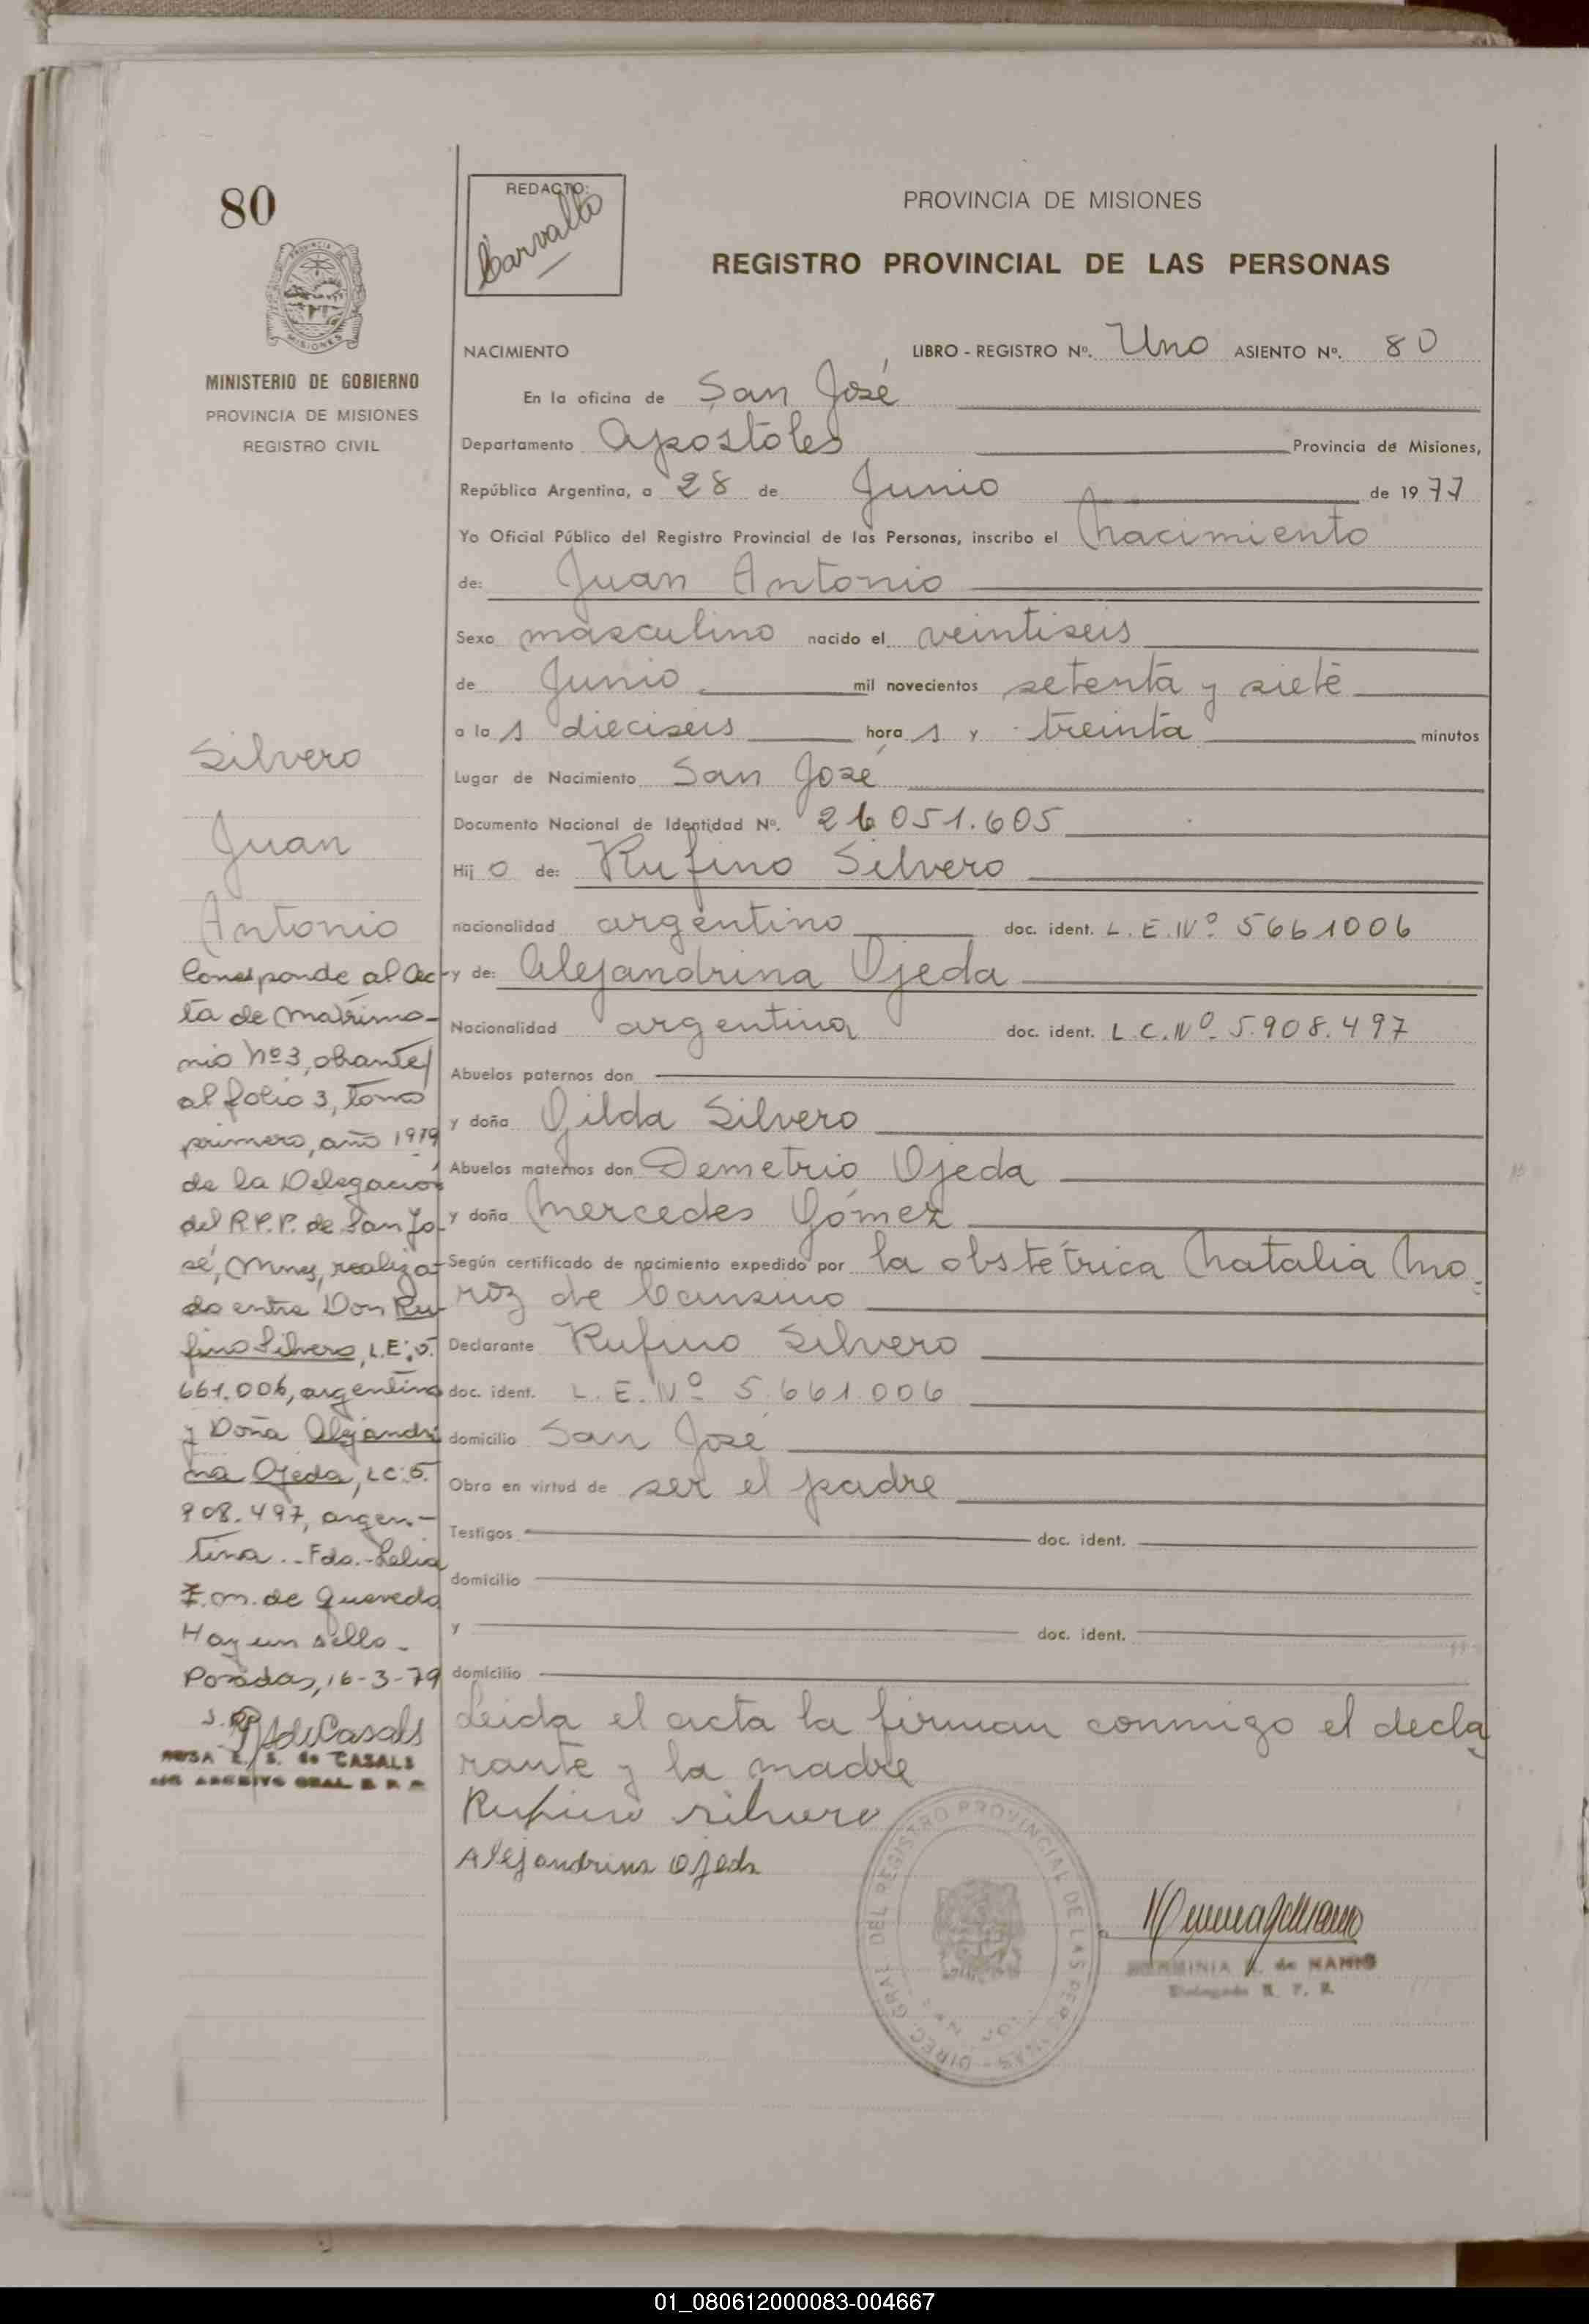 80
PROVINCIA DE MISIONES
MINISTERIO DE GOBIERNO
PROVINCIA DE MISIONES
REGISTRO CIVIL
Silvero
Juan
Antonio
Corresponde al Ac-
ta de Matrimo-
nio Nº 3, obrante
al folio 3, tomo
primero, año 1979
de la Delegación
del R.P.P. de San Jo-
sé, Mnes, realiza-
do entre Don Ru-
fino Silvero, L.E: 5.
661.006, argentino
y Doña Alejandri
na Ojeda, LC: 5.
908.497, argen-
tina.. Fdo.- Lelia
E. M. de Quevedo
Hay un sello.-
Posadas, 16-3-79
ROSA E. S. de CASALS
ARCHIVO GRAL R. P. P.
REDACTO:
Carvallo
PROVINCIA DE MISIONES
REGISTRO PROVINCIAL DE LAS PERSONAS
NACIMIENTO LIBRO - REGISTRO Nº. Uno ASIENTO Nº. 80
En la oficina de San José
Departamento Apostoles Provincia de Misiones,
República Argentina, a 28 de Junio de 1977
Yo Oficial Público del Registro Provincial de las Personas, inscribo el Nacimiento
de: Juan Antonio
Sexo masculino nacido el veintiseis
de Junio mil novecientos setenta y siete
a la s dieciseis hora s y treinta minutos
Lugar de Nacimiento San José
Documento Nacional de Identidad Nº. 26 051.605
Hij o de: Rufino Silvero
nacionalidad argentino doc. ident. L. E. Nº 5661006
y de: Alejandrina Ojeda
Nacionalidad argentina doc. ident. L.C. Nº 5.908.497
Abuelos paternos don
y doña Gilda Silvero
Abuelos maternos don Demetrio Ojeda
y doña Mercedes Gómez
Según certificado de nacimiento expedido por la obstétrica Natalia Mo-
roz de Cansino
Declarante Rufino Silvero
doc. ident. L. E. Nº 5.661.006
domicilio San José
Obra en virtud de ser el padre
Testigos doc. ident.
domicilio
y doc. ident.
domicilio
Leida el acta la firman conmigo el decla
rante y la madre
Rufino silvero
Alejandrina Ojeda
DIREC. GRAL. DEL REGISTRO PROVINCIAL DE LAS PERSONAS
SAN JOSE
HERMINIA de NAMIO
Delegada R. P. P.
01_080612000083-004667